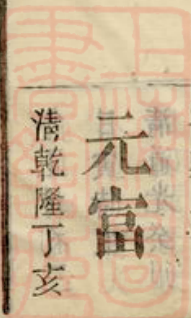 元富
清乾隆丁亥